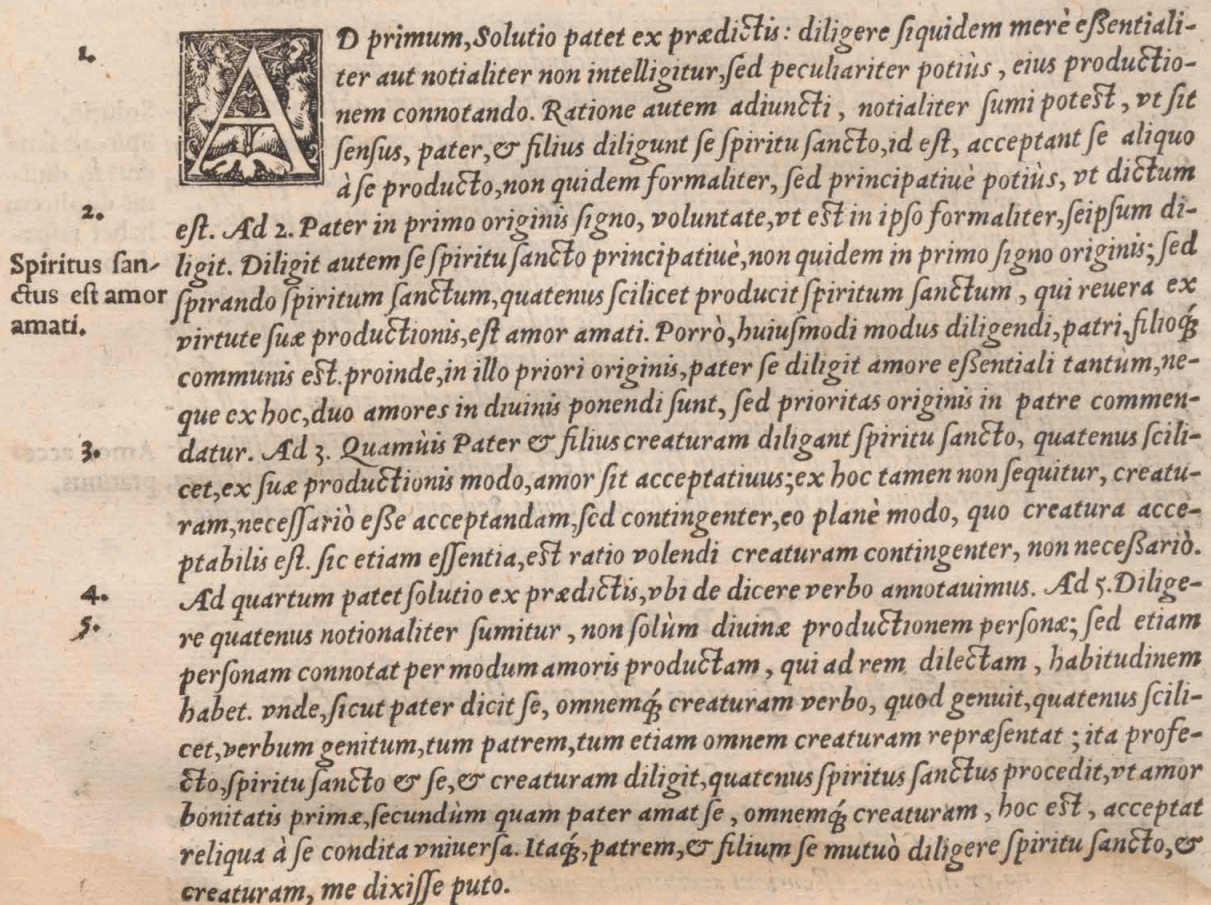 1.
AD primum, Solutio patet ex prædictis: diligere siquidem merè eßentiali-
ter aut notialiter non intelligitur, sed peculiariter potiùs, eius productio-
nem connotando. Ratione autem adiuncti, notialiter sumi potest, vt sit
sensus, pater, & filius diligunt se spiritu sancto, id est, acceptant se aliquo
à se producto, non quidem formaliter, sed principatiuè potiùs, vt dictum
2.
est. Ad 2. Pater in primo originis signo, voluntate, vt est in ipso formaliter, seipsum di-
Spiritus san-
ctus est amor
amati.
ligit. Diligit autem se spiritu sancto principatiuè, non quidem in primo signo originis; sed
spirando spiritum sanctum, quatenus scilicet producit spiritum sanctum, qui reuera ex
virtute suæ productionis, est amor amati. Porrò, huiusmodi modus diligendi, patri, filioq́;
communis est. proinde, in illo priori originis, pater se diligit amore eßentiali tantùm, ne-
que ex hoc, duo amores in diuinis ponendi sunt, sed prioritas originis in patre commen-
3.
datur. Ad 3. Quamùis Pater & filius creaturam diligant spiritu sancto, quatenus scili-
cet, ex suæ productionis modo, amor sit acceptatiuus; ex hoc tamen non sequitur, creatu-
ram, necessariò eße acceptandam, sed contingenter, eo planè modo, quo creatura acce-
ptabilis est. sic etiam essentia, est ratio volendi creaturam contingenter, non neceßariò.
4.
Ad quartum patet solutio ex prædictis, vbi de dicere verbo annotauimus. Ad 5. Dilige-
5.
re quatenus notionaliter sumitur, non solùm diuinæ productionem personæ; sed etiam
personam connotat per modum amoris productam, qui ad rem dilectam, habitudinem
habet. vnde, sicut pater dicit se, omnemq́; creaturam verbo, quod genuit, quatenus scili-
cet, verbum genitum, tum patrem, tum etiam omnem creaturam repræsentat; ita profe-
cto, spiritu sancto & se, & creaturam diligit, quatenus spiritus sanctus procedit, vt amor
bonitatis primæ, secundùm quam pater amat se, omnemq́; creaturam, hoc est, acceptat
reliqua à se condita vniuersa. Itaq́;, patrem, & filium se mutuò diligere spiritu sancto, &
creaturam, me dixisse puto.